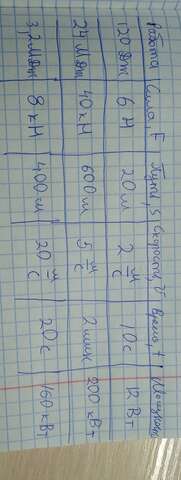 Работа Сила, F Путь, s Скорость, v Время, t Мощност
120 Дж 6 Н 20 м 2 м/с 10 с 12 Вт
24 МДж 40 кН 600 м 5 м/с 2 мин 200 кВт
3,2 МДж 8 кН 400 м 20 м/с 20 с 160 кВт